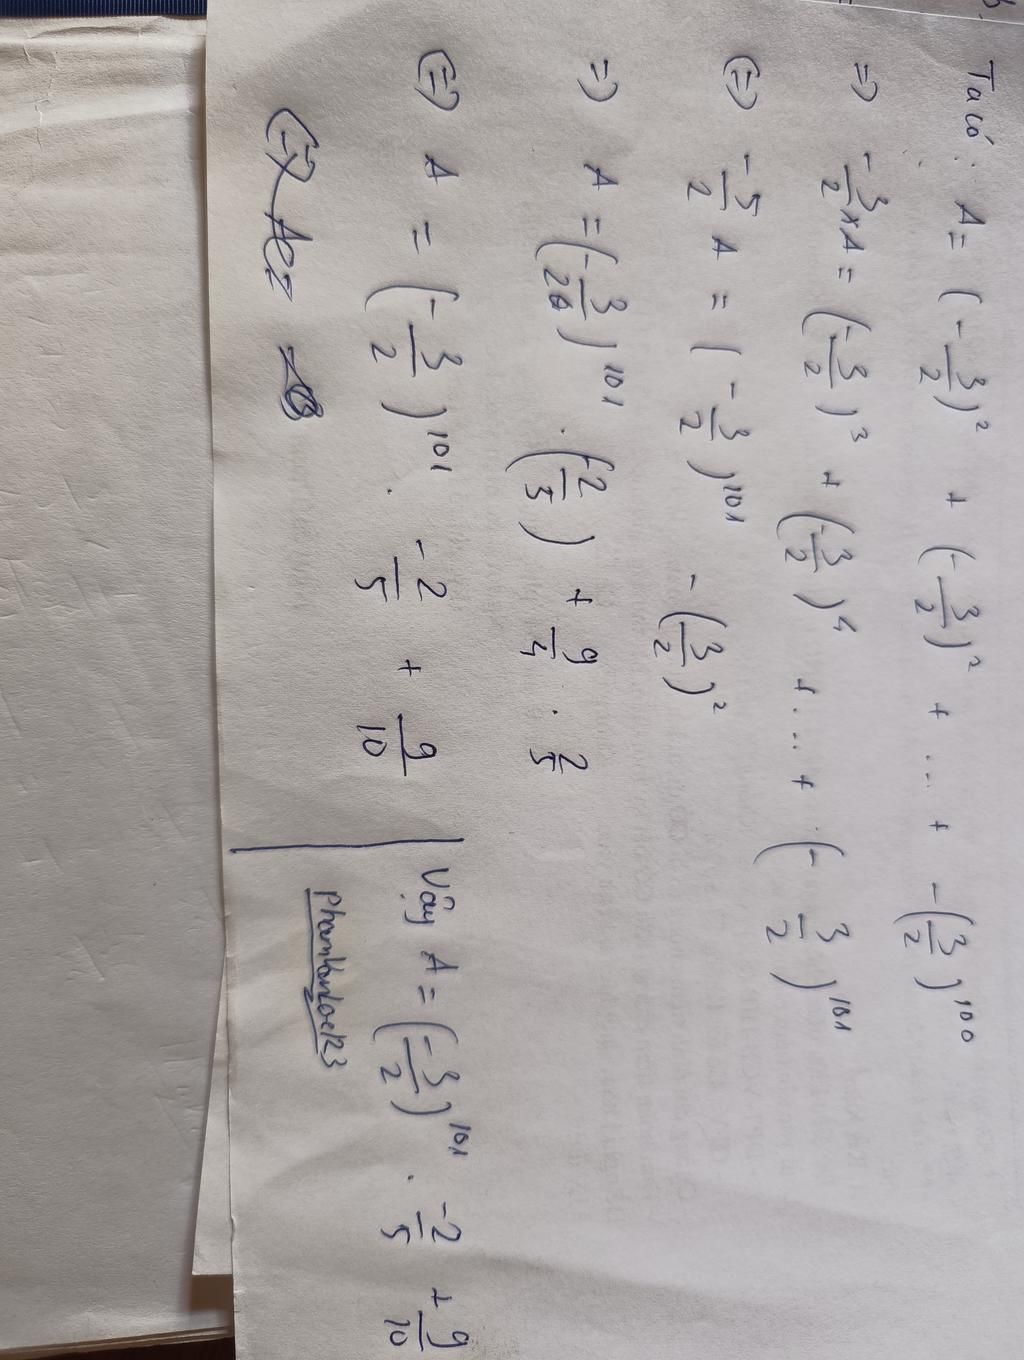 Ta có: A = (-3/2)² + (-3/2)² + ... + -(3/2)¹⁰⁰
=> -3/2 × A = (-3/2)³ + (-3/2)⁴ + ... + (-3/2)¹⁰¹
<=> -5/2 A = (-3/2)¹⁰¹ - (3/2)²
=> A = (-3/2)¹⁰¹ . (-2/5) + 9/4 . 2/5
<=> A = (-3/2)¹⁰¹ . -2/5 + 9/10
Vậy A = (-3/2)¹⁰¹ . -2/5 + 9/10